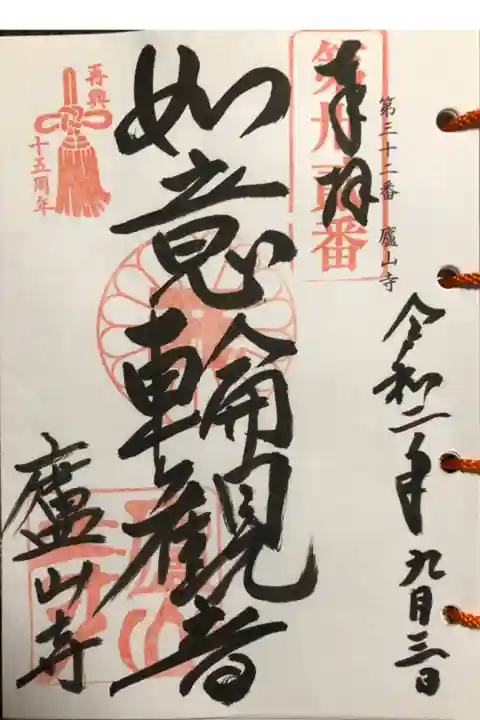 第三十二番 廬山寺
令和二年九月三日
奉拝
第卅貳番
如意輪観音
廬山寺
再興
十五周年